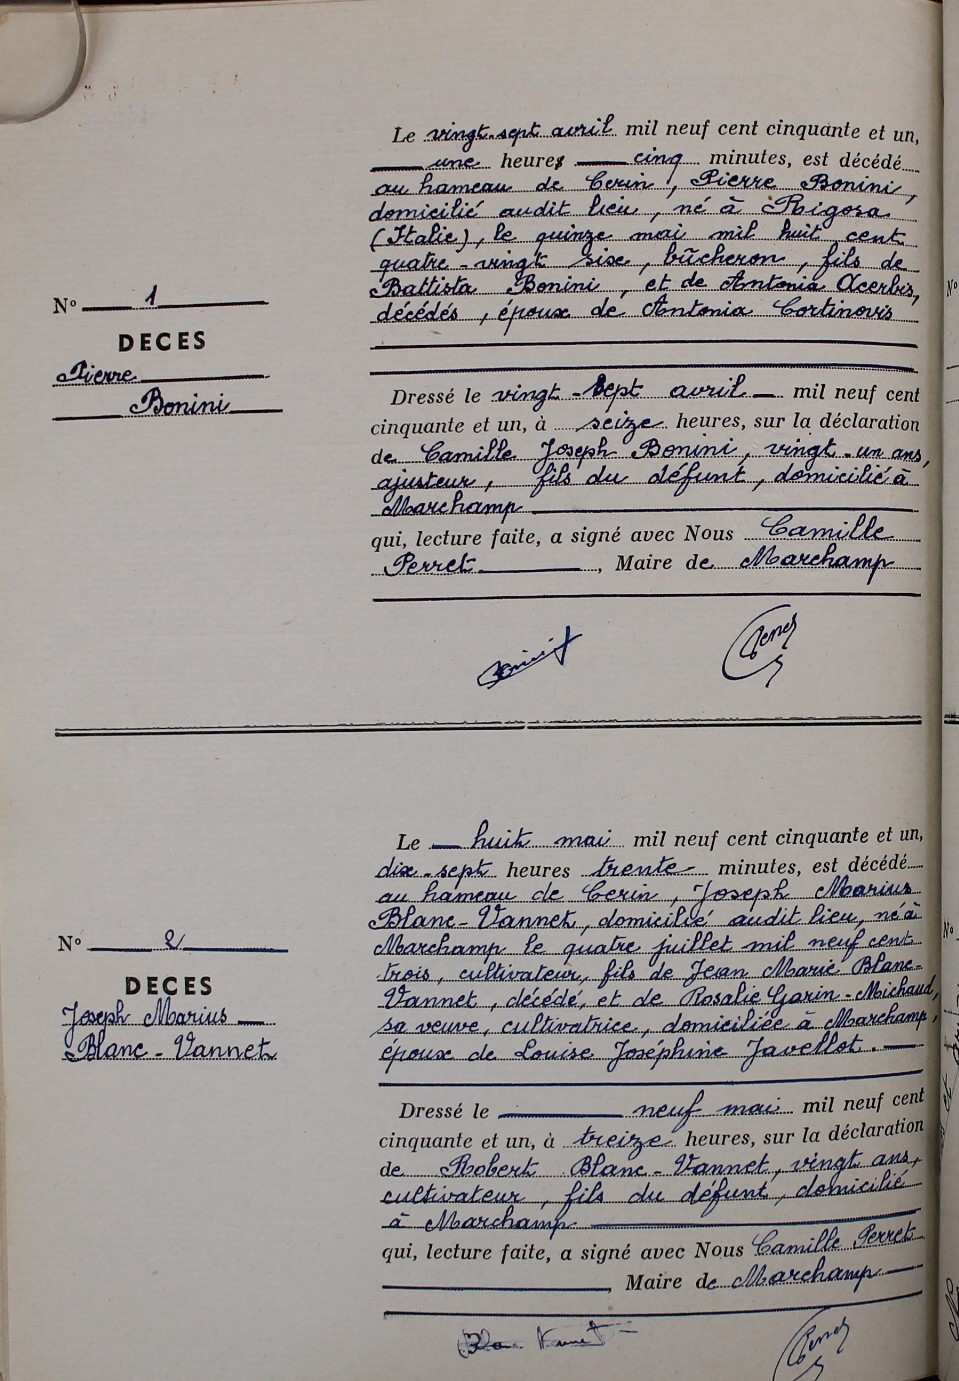 Le vingt-sept avril mil neuf cent cinquante et un,
une heures cinq minutes, est décédé
au hameau de Cerin, Pierre Bonini,
domicilié audit lieu, né à Rigosa
(Italie), le quinze mai mil huit cent
quatre-vingt sixe, bûcheron, fils de
Battista Bonini, et de Antonia Acerbis,
décédés, époux de Antonia Cortinovis
N° 1
DECES
Pierre
Bonini
Dressé le vingt-sept avril mil neuf cent
cinquante et un, à seize heures, sur la déclaration
de Camille Joseph Bonini, vingt-un ans,
ajusteur, fils du défunt, domicilié à
Marchamp
qui, lecture faite, a signé avec Nous Camille
Perret, Maire de Marchamp
Bonini
Perret
Le huit mai mil neuf cent cinquante et un,
dix-sept heures trente minutes, est décédé
au hameau de Cerin, Joseph Marius
Blanc-Vannet, domicilié audit lieu, né à
Marchamp le quatre juillet mil neuf cent
trois, cultivateur, fils de Jean Marie Blanc-
Vannet, décédé, et de Rosalie Garin-Michaud,
sa veuve, cultivatrice, domiciliée à Marchamp,
époux de Louise Joséphine Javellot.
N° 2
DECES
Joseph Marius
Blanc-Vannet
Dressé le neuf mai mil neuf cent
cinquante et un, à treize heures, sur la déclaration
de Robert Blanc-Vannet, vingt ans,
cultivateur, fils du défunt, domicilié
à Marchamp
qui, lecture faite, a signé avec Nous Camille Perret
Maire de Marchamp
Blanc Vannet
Perret
N°
N°